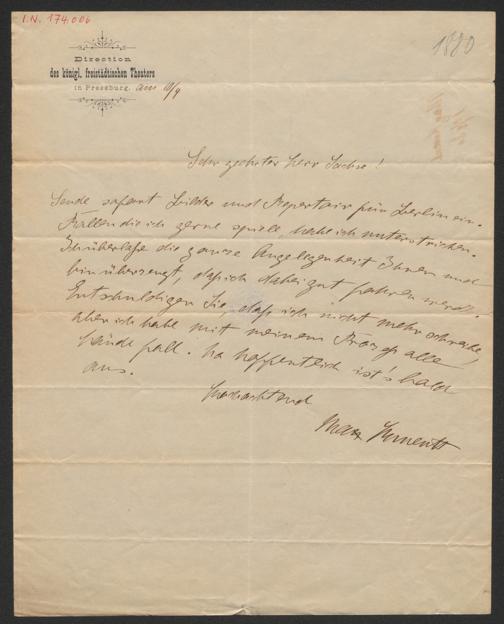 I.N. 174.006
1880
Direction
des königl. freistädtischen Theaters
in Pressburg. am 10/9
Sehr geehrter Herr Sachse!
Sende sofort Bilder und Repertoir für Berlin ein.
Rollen die ich gerne spiele, habe ich unterstrichen.
Ich überlaße die ganze Angelegenheit Ihnen und
bin überzeugt, daß ich dabei gut fahren werde.
Entschuldigen Sie, daß ich nicht mehr schreibe,
aber ich habe mit meinem Prozeß alle
Hände voll. Na hoffentlich ist's bald
aus.
Hochachtend
Max